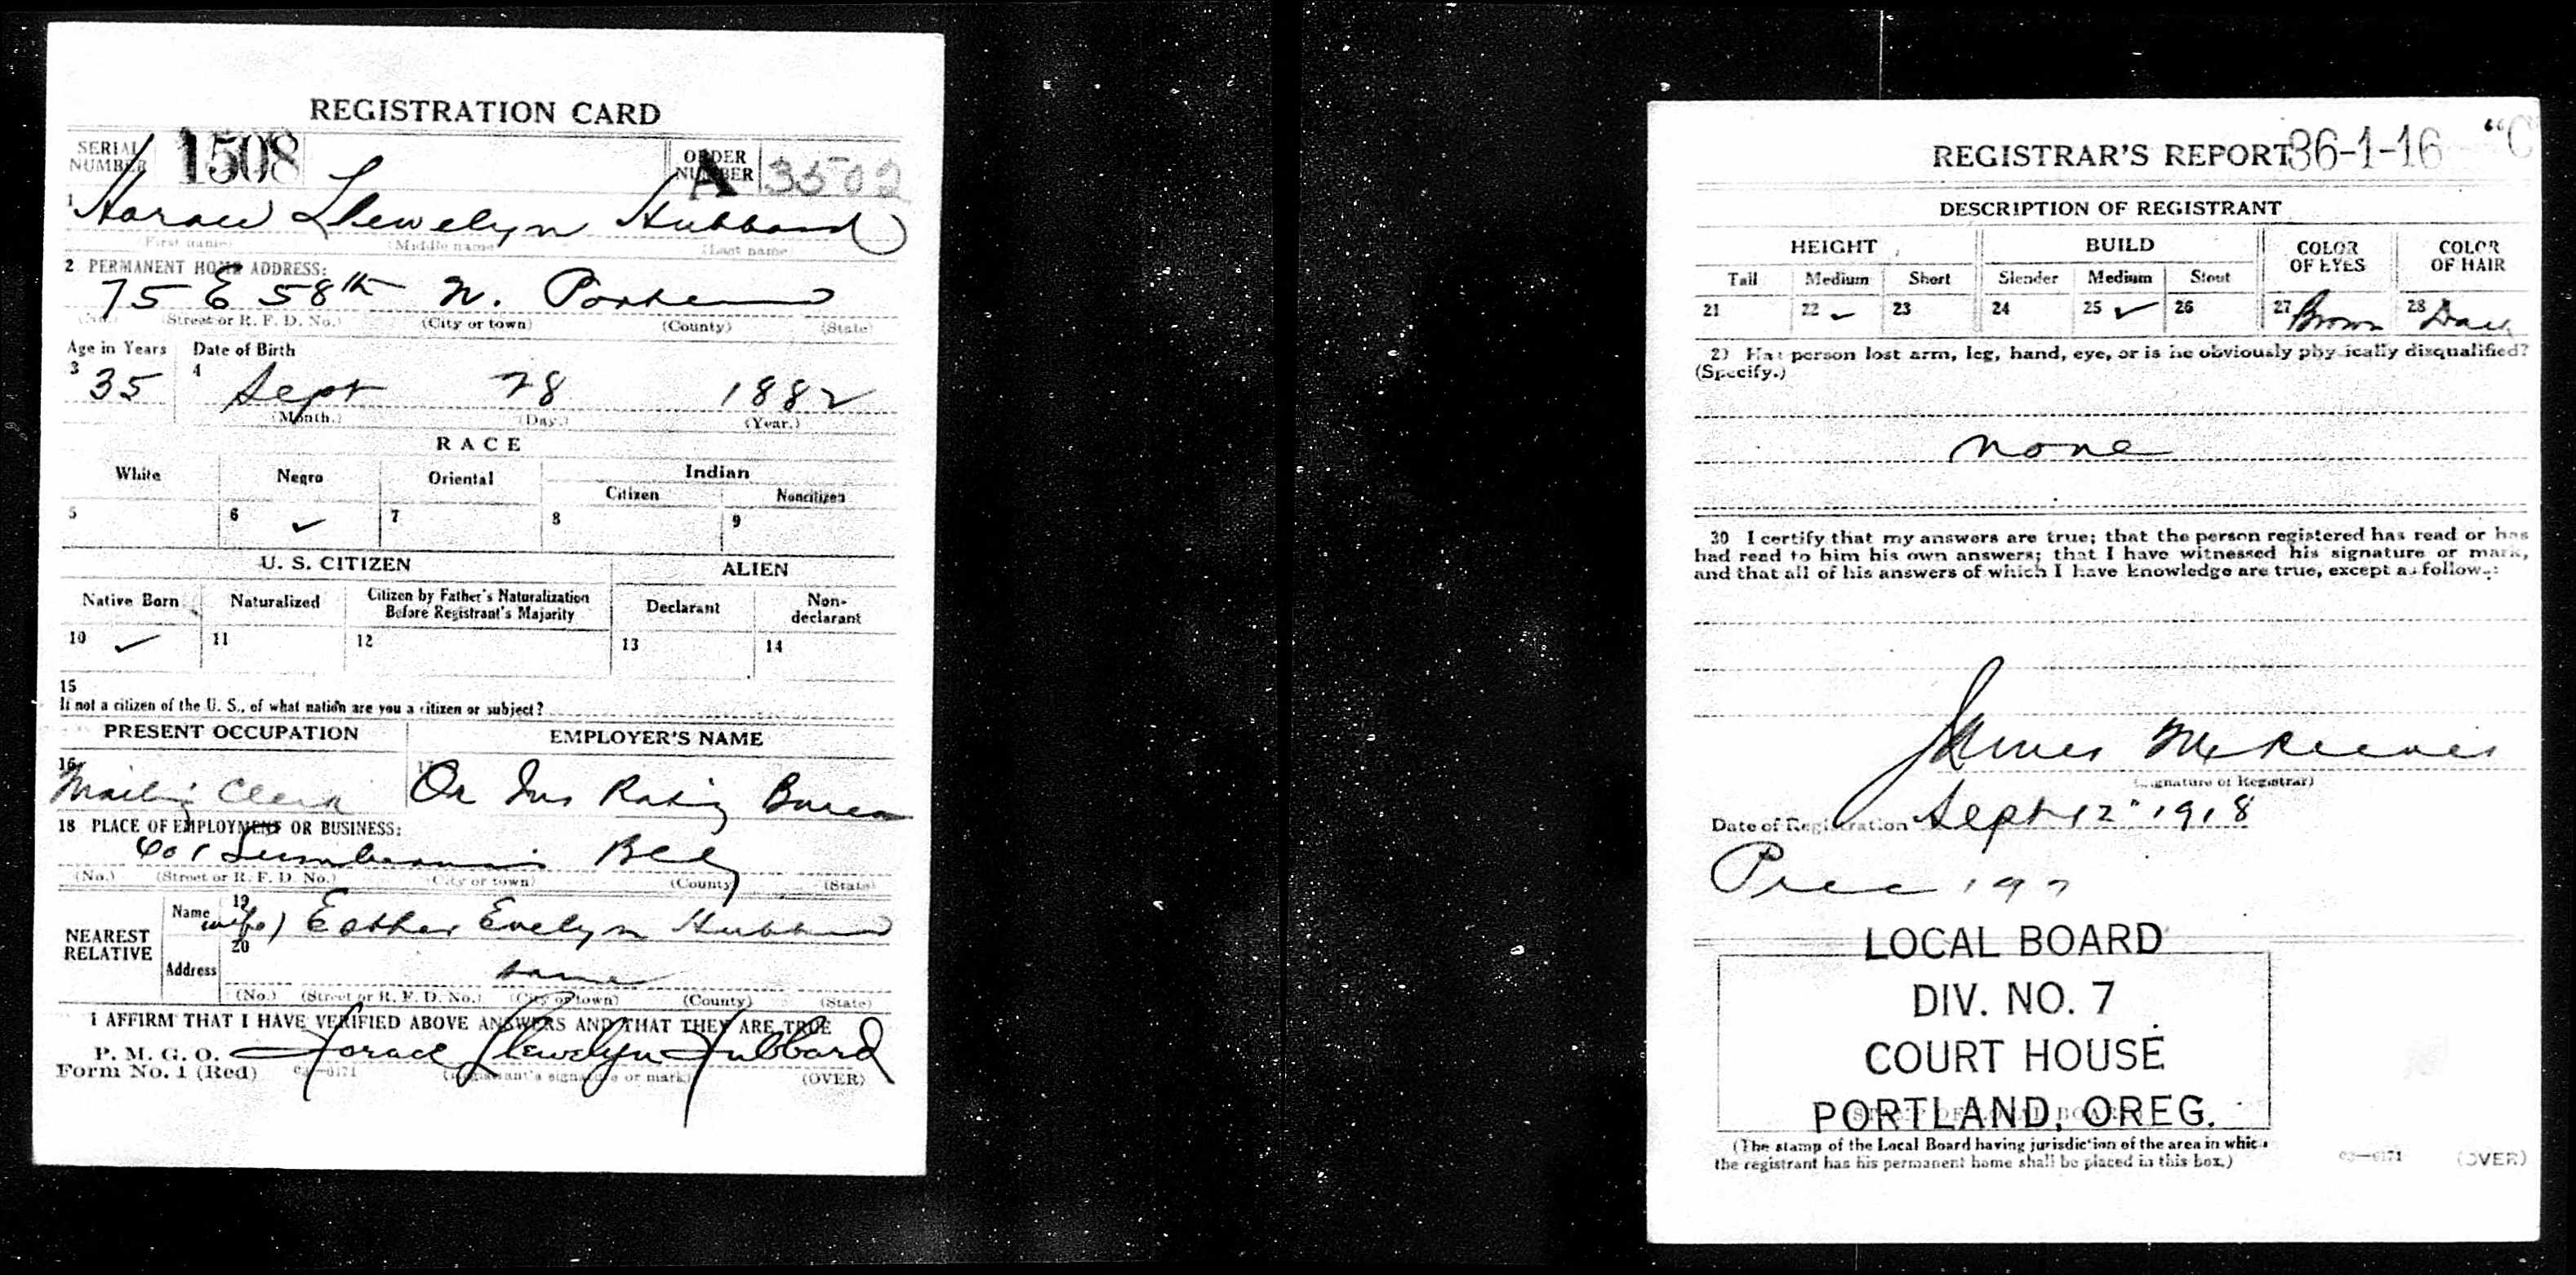 REGISTRATION CARD
SERIAL NUMBER 1508 ORDER NUMBER A 3502
1 Horace Llewelyn Hubbard
(First name) (Middle name) (Last name)
2 PERMANENT HOME ADDRESS:
75 E 58th N. Portland
(No.) (Street or R. F. D. No.) (City or town) (County) (State)
Age in Years Date of Birth
3 35 4 Sept 28 1882
(Month.) (Day.) (Year.)
RACE
White Negro Oriental Indian
Citizen Noncitizen
5 6 ✓ 7 8 9
U. S. CITIZEN ALIEN
Native Born Naturalized Citizen by Father's Naturalization Before Registrant's Majority Declarant Non-declarant
10 ✓ 11 12 13 14
15
If not a citizen of the U. S., of what nation are you a citizen or subject?
PRESENT OCCUPATION EMPLOYER'S NAME
16 Mailing Clerk 17 Or Ins Rating Bureau
18 PLACE OF EMPLOYMENT OR BUSINESS:
601 Lumbermens Bldg
(No.) (Street or R. F. D. No.) (City or town) (County) (State)
NEAREST RELATIVE
Name 19 (wife) Esther Evelyn Hubbard
Address 20 same
(No.) (Street or R. F. D. No.) (City or town) (County) (State)
I AFFIRM THAT I HAVE VERIFIED ABOVE ANSWERS AND THAT THEY ARE TRUE
P. M. G. O. Horace Llewelyn Hubbard
Form No. 1 (Red) 03—6171 (Registrant's signature or mark) (OVER)
REGISTRAR'S REPORT 36-1-16 "C
DESCRIPTION OF REGISTRANT
HEIGHT BUILD COLOR OF EYES COLOR OF HAIR
Tall Medium Short Slender Medium Stout
21 22 ✓ 23 24 25 ✓ 26 27 Brown 28 Dark
29 Has person lost arm, leg, hand, eye, or is he obviously physically disqualified?
(Specify.)
none
30 I certify that my answers are true; that the person registered has read or has
had read to him his own answers; that I have witnessed his signature or mark,
and that all of his answers of which I have knowledge are true, except as follows:
James
(Signature of Registrar)
Date of Registration Sept 12" 1918
Prec 197
LOCAL BOARD
DIV. NO. 7
COURT HOUSE
PORTLAND, OREG.
(STAMP OF LOCAL BOARD)
(The stamp of the Local Board having jurisdiction of the area in which
the registrant has his permanent home shall be placed in this box.)
03—6171 (OVER)